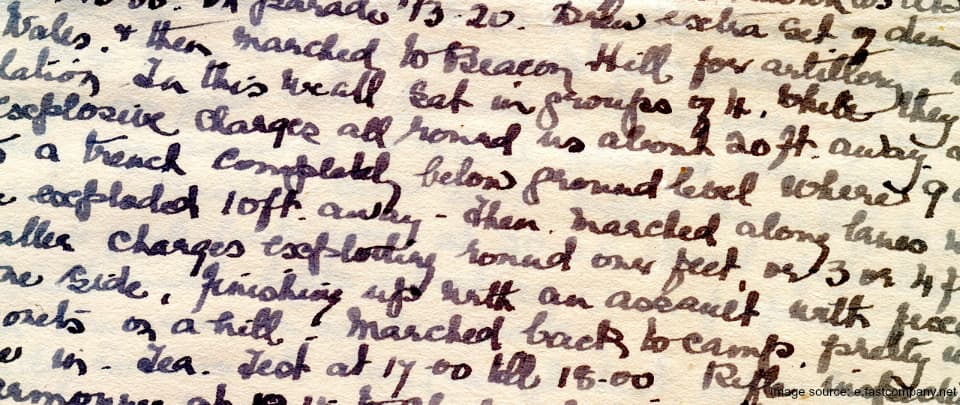 On parade 13.20. Drew extra set of
Wales. & then marched to Beacon Hill for artillery
lation In this we all sat in groups of 4, while they
explosive charges all round us about 20ft. away.
a trench completely below ground level where 9
exploded 10ft. away - Then marched along lanes
aller charges exploding round our feet, or 3 or 4 f
side, finishing up with an assault with fixed
onets on a hill. Marched back to camp. pretty
in. Tea. Test at 17-00 till 18-00 Rifle
image source: e.fastcompany.net